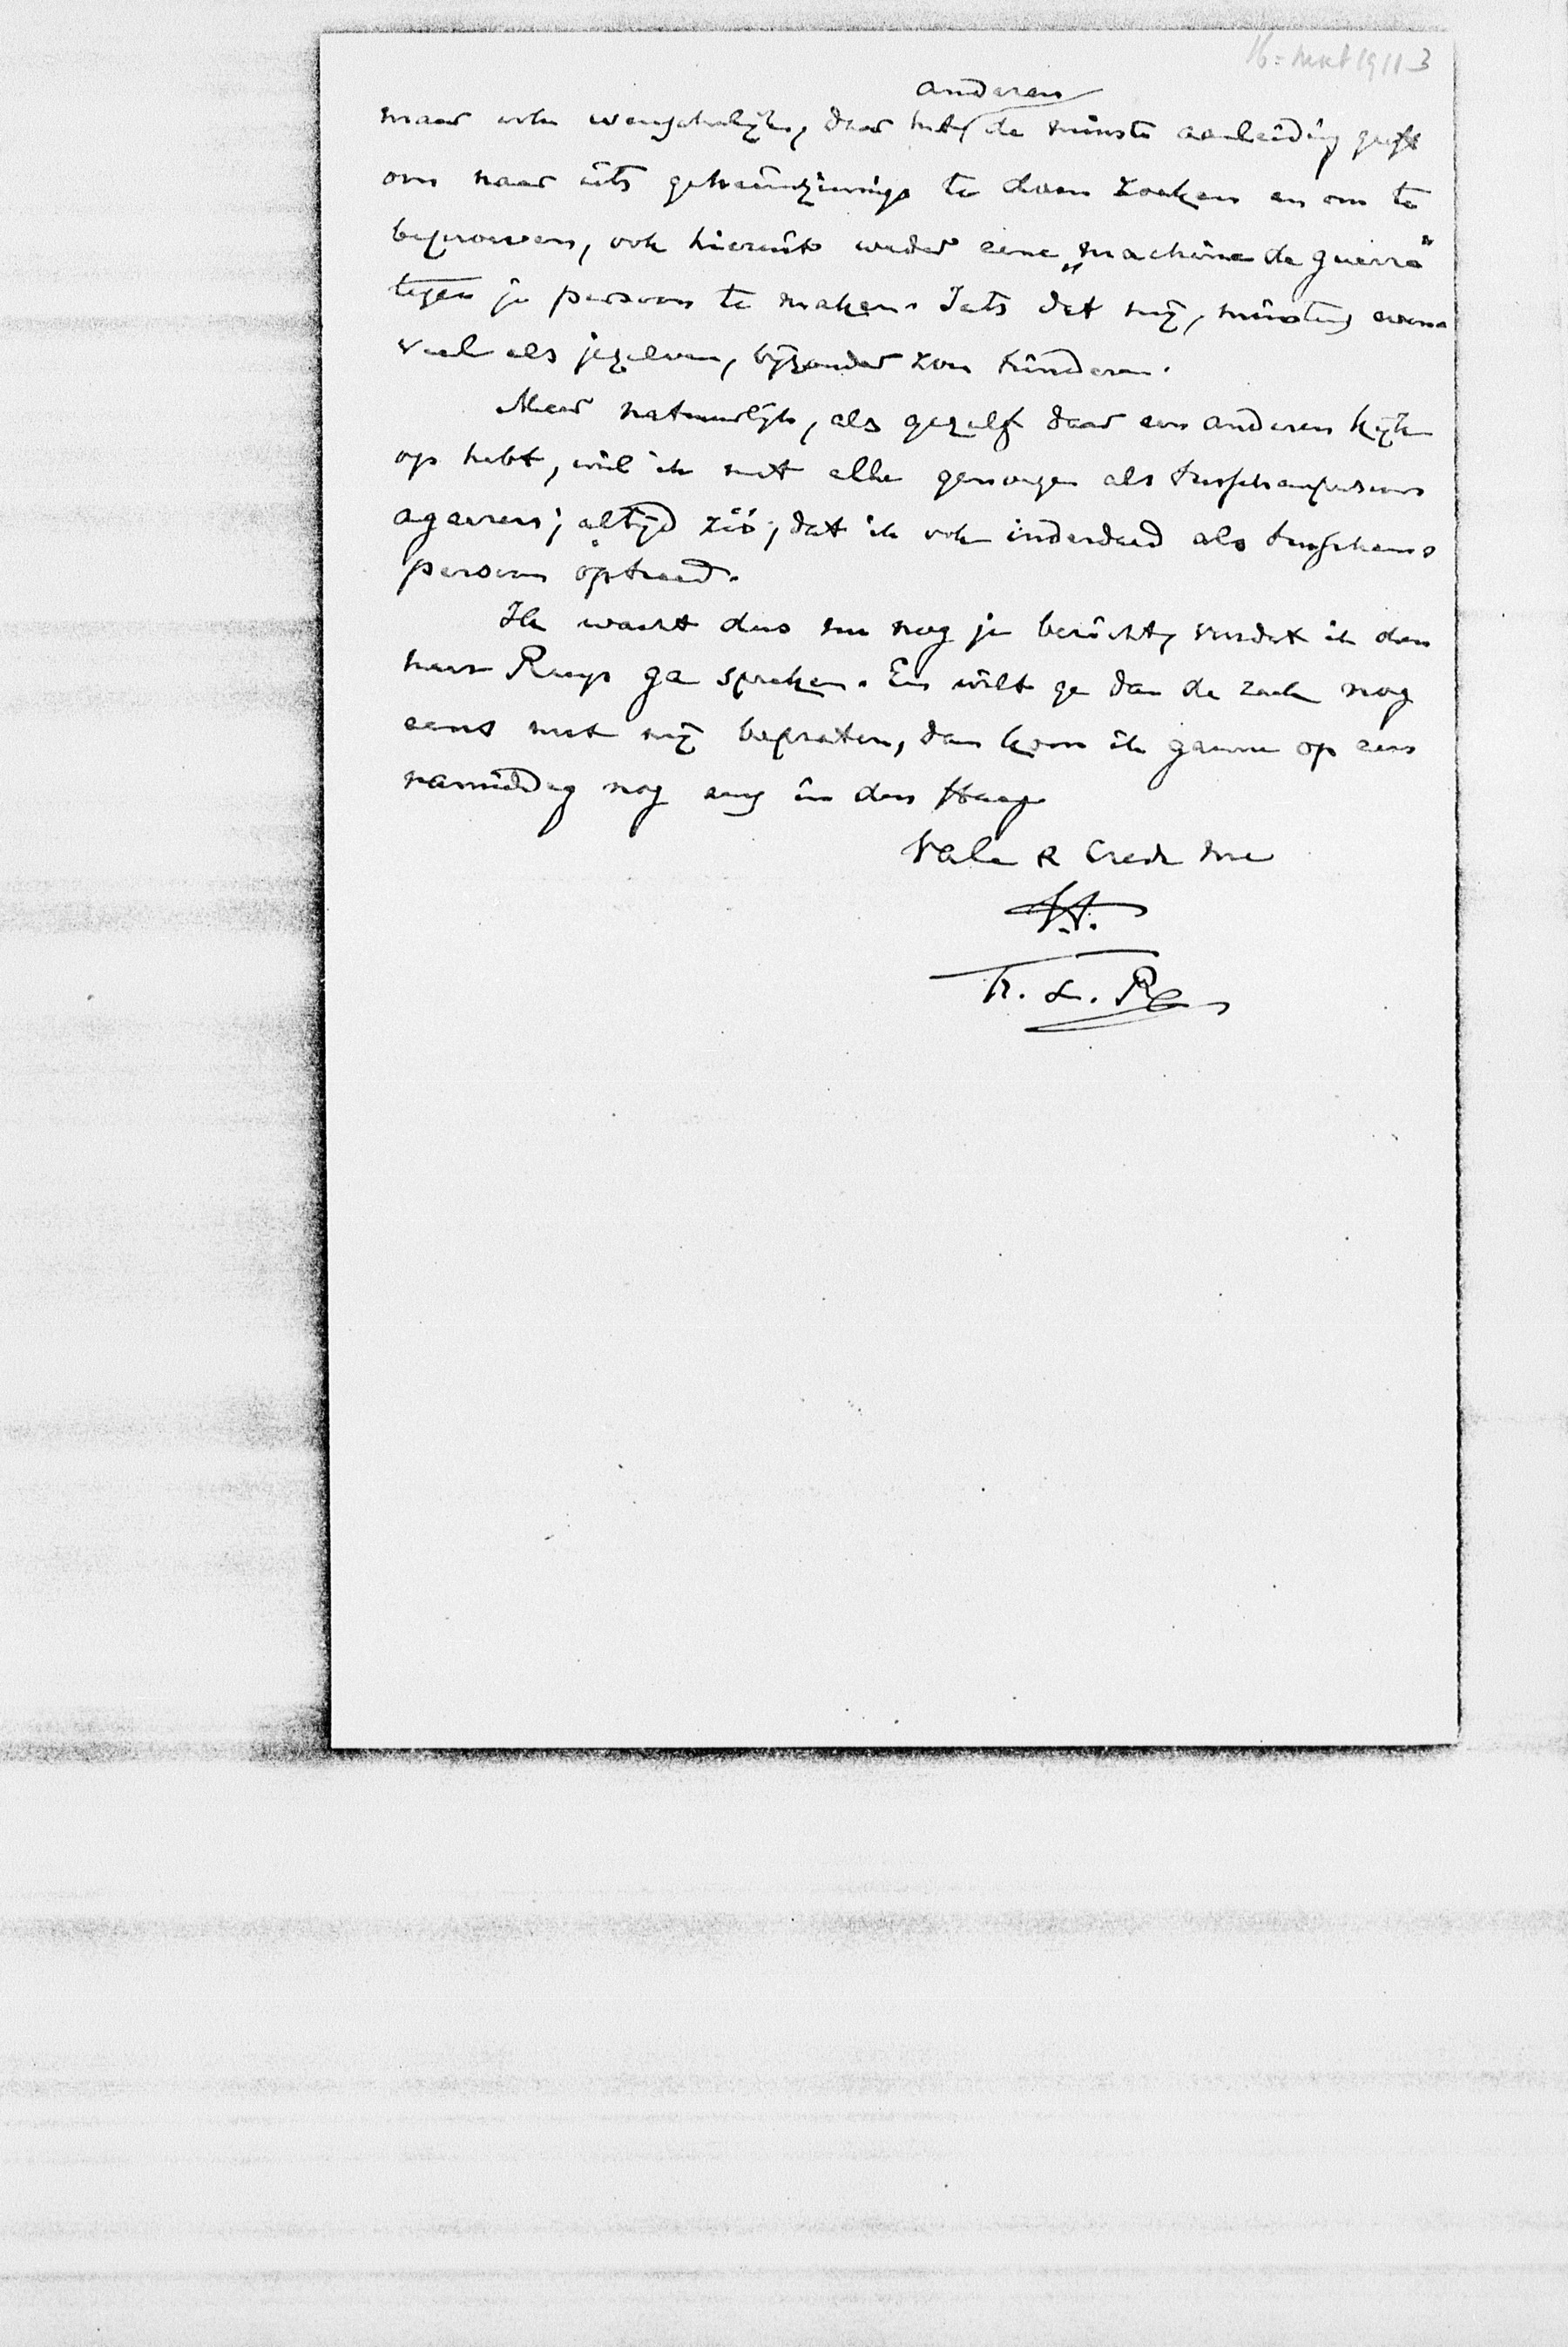 16 = Mrt 1911 3
anderen
maar ook wenschelijk, daar het de minste aanleiding geeft
om naar iets geheimzinnigs te doen zoeken en om te
beproeven, ook hieruit weder eene „machine de guerre"
tegen je persoon te maken. Iets dat mij, minstens even
veel als jezelven, bijzonder zou hinderen.
Maar natuurlijk, als gezelf daar een anderen kijk
op hebt, wil ik met alle genoegen als tusschenpersoon
ageeren; altijd zóó, dat ik ook inderdaad als tusschen
persoon optreed.
Ik wacht dus nu nog je bericht, voordat ik den
heer Ruys ga spreken. En wilt ge dan de zaak nog
eens met mij bepraten, dan kom ik gaarne op een
namiddag nog eens in den Haag
Vale & Crede me
t.t.